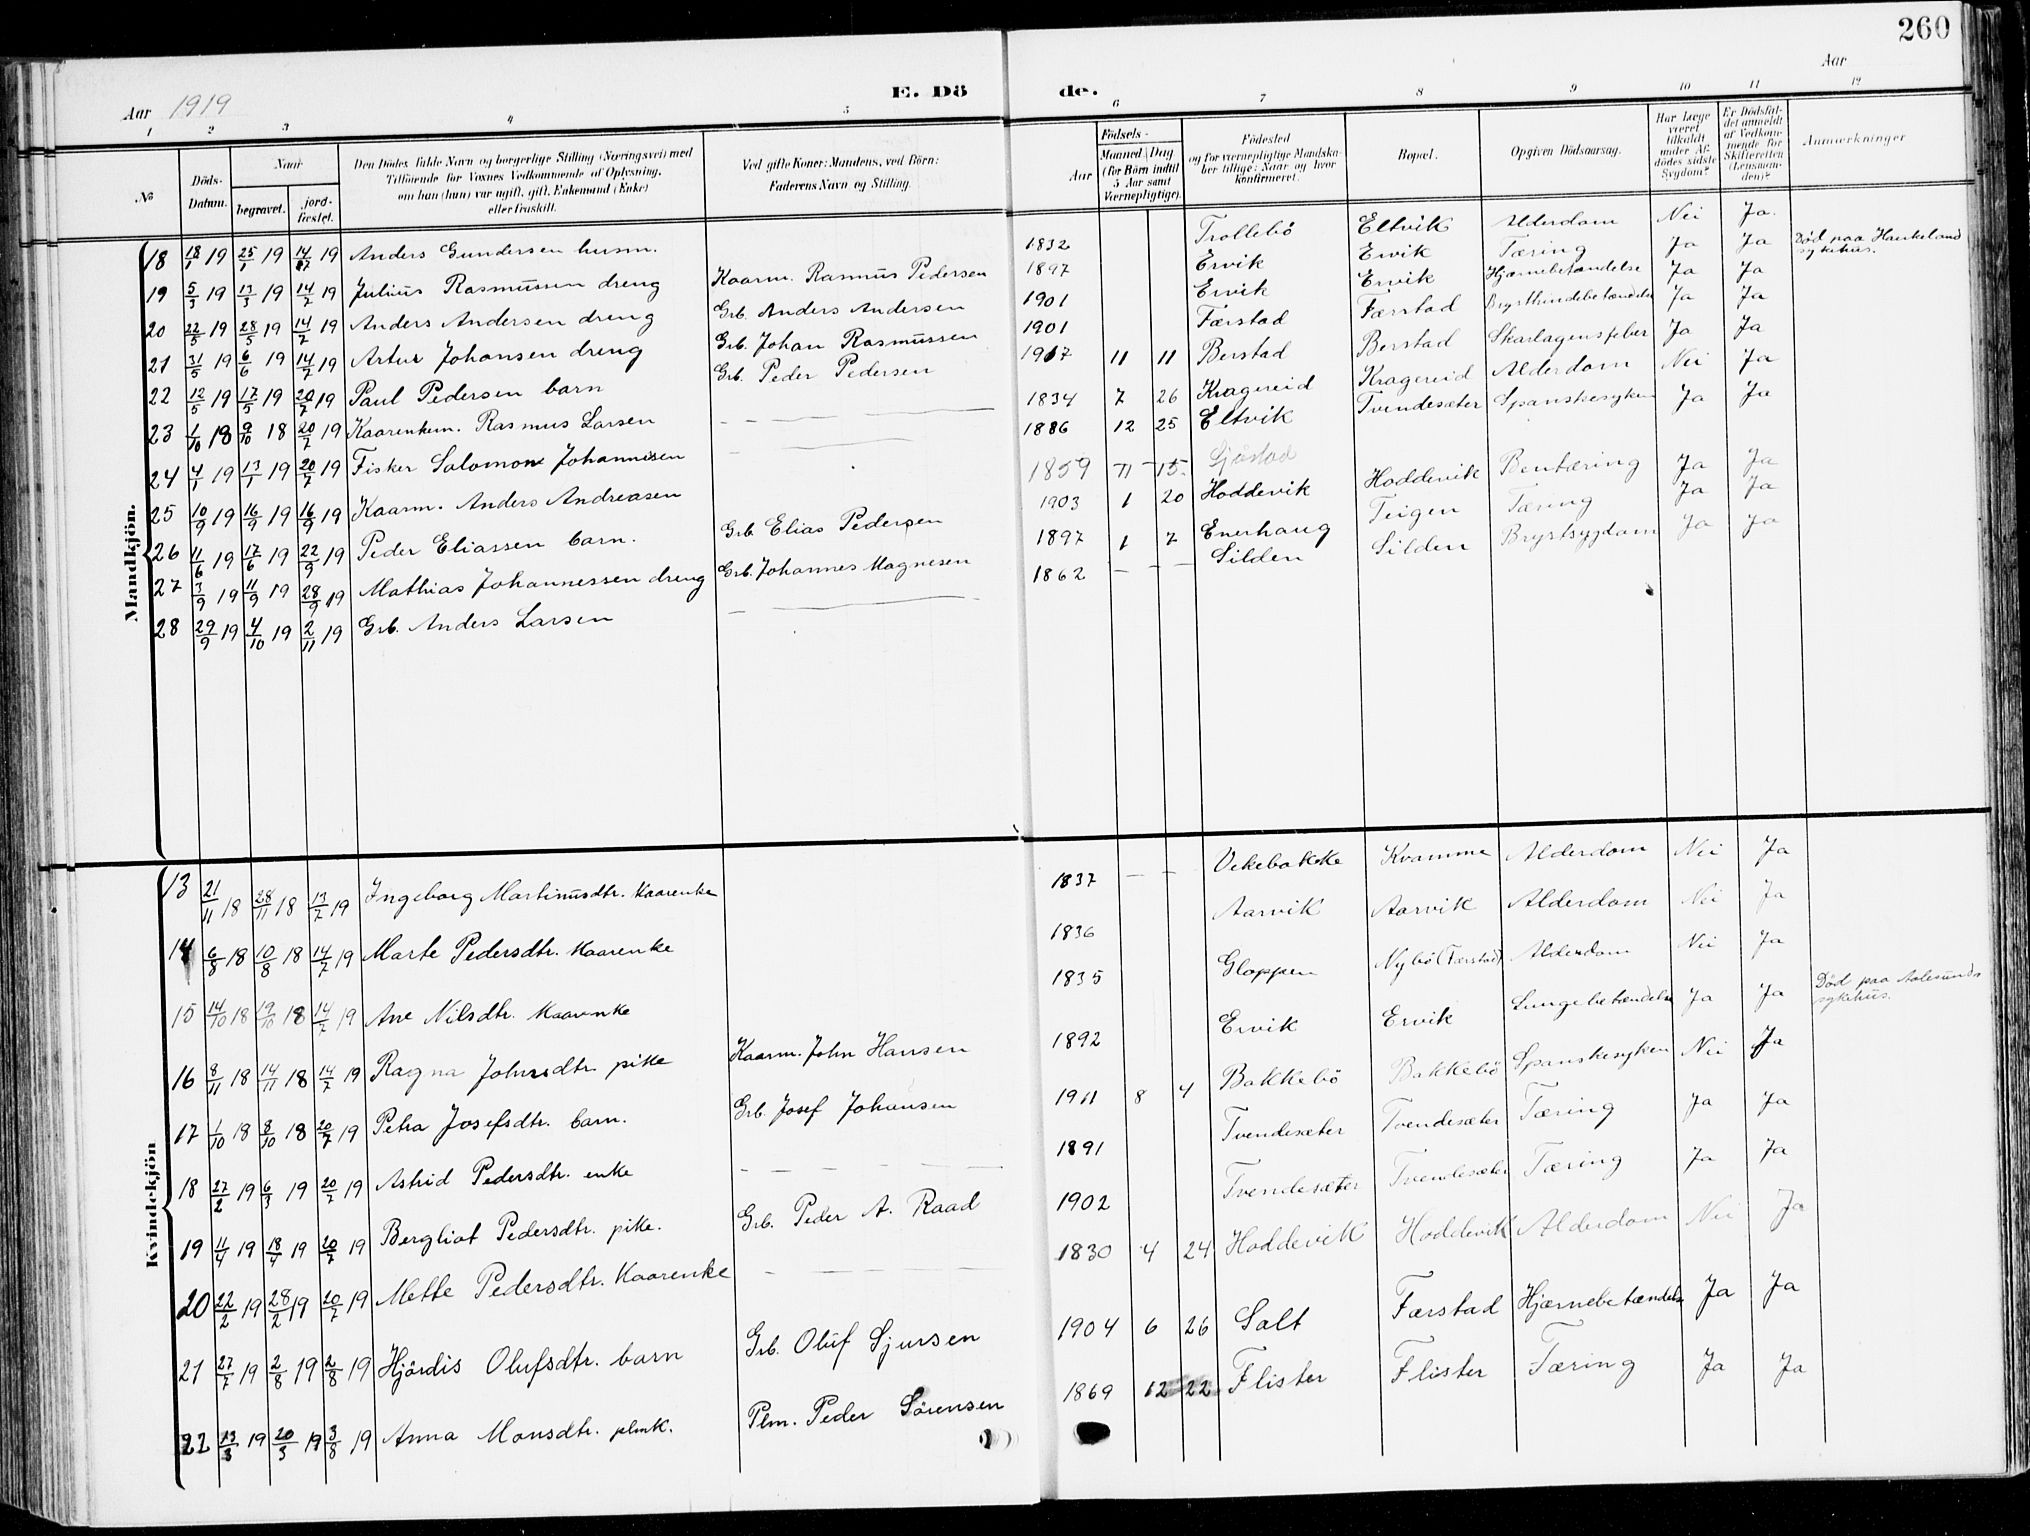 260
Aar 1919
E. Dö de.
Aar
1 2 3 4 5 6 7 8 9 10 11 12
No
Döds-Datum.
Naar
begravet.
jord-fæstet.
Den Dödes fulde Navn og borgerlige Stilling (Næringsvei) med
Tilföiende for Voxnes Vedkommende af Oplysning,
om han (hun) var ugift, gift, Enkemand (Enke)
eller fraskilt.
Ved gifte Koner: Mandens, ved Börn:
Faderens Navn og Stilling.
Födsels-
Aar
Maaned Dag
(for Börn indtil
5 Aar samt
Værnepligtige).
Födested
og for værnepligtige Mandska-
ber tillige: Naar og hvor
konfirmeret.
Bopæl.
Opgiven Dödsaarsag.
Har Læge
været
tilkaldt
under Af-
dödes sidste
Sygdom?
Er Dödsfal-
det anmeldt
af Vedkom-
mende for
Skifteretten
(Lensman-
den)?
Anmærkninger
Mandkjön.
18 18/1 19 25/1 19 14/7 19 Anders Gundersen husm. 1832 Trollebö Eltvik Alderdom Nei Ja.
19 5/3 19 13/3 19 14/7 19 Julius Rasmussen dreng Kaarm. Rasmus Pedersen 1897 Ervik Ervik Tæring Ja Ja Död paa Haukeland sykehus.
20 22/5 19 28/5 19 14/7 19 Anders Andersen dreng Grb. Anders Andersen 1901 Ervik Ervik Hjernebetændelse Ja Ja
21 31/5 19 6/6 19 14/7 19 Artur Johansen dreng Grb. Johan Rasmussen 1901 Færstad Færstad Brysthindebetændelse Ja Ja
22 12/5 19 17/5 19 20/7 19 Paul Pedersen barn Grb. Peder Pedersen 1917 11 11 Berstad Berstad Skarlagensfeber Ja Ja
23 1/10 18 9/10 18 20/7 19 Kaarenkem. Rasmus Larsen 1834 7 26 Kragereid Kragereid Alderdom Nei Ja
24 4/1 19 13/1 19 20/7 19 Fisker Salomon Johannesen 1886 12 25 Eltvik Tvendesæter Spanskesyken Ja Ja
25 10/9 19 16/9 19 16/9 19 Kaarm. Anders Andreasen 1859 11 15. Sjåstad
26 11/6 19 17/6 19 22/9 19 Peder Eliassen barn. Grb Elias Pedersen 1903 1 20 Hoddevik Hoddevik Bentæring Ja Ja
27 3/9 19 11/9 19 28/9 19 Mathias Johannessen dreng Grb. Johannes Magnesen 1897 1 7 Enerhaug Teigen Tæring Ja Ja
28 29/9 19 4/10 19 2/11 19 Grb. Anders Larsen 1862 Silden Silden Brystsygdom Ja Ja
Kvindekjön
13 21/11 18 28/11 18 13/7 19 Ingeborg Martinusdtr. Kaarenke 1837 Vekebakke Kvamme Alderdom Nei Ja
14 6/8 18 10/8 18 14/7 19 Marte Pedersdtr. Kaarenke 1836 Aarvik Aarvik Alderdom Nei Ja
15 14/10 18 19/10 18 14/7 19 Ane Nilsdtr. Kaarenke 1835 Gloppen Nybö (Færstad) Alderdom Nei Ja
16 8/11 18 14/11 18 14/7 19 Ragna Johnsdtr pike Kaarm. John Hansen 1892 Ervik Ervik Lungebetændelse Ja Ja Död paa Aalesunds sykehus.
17 1/10 18 8/10 18 20/7 19 Petra Josefsdtr. barn. Grb. Josef Johansen 1911 8 4 Bakkebö Bakkebö Spanskesyken Nei Ja
18 27/2 19 6/3 19 20/7 19 Astrid Pedersdtr. enke 1891 Tvendesæter Tvendesæter Tæring Ja Ja
19 11/4 19 18/4 19 20/7 19 Bergliot Pedersdtr. pike. Grb. Peder A. Raad 1902 Tvendesæter Tvendesæter Tæring Ja Ja
20 22/2 19 28/2 19 20/7 19 Mette Pedersdtr. Kaarenke 1830 4 24 Hoddevik Hoddevik Alderdom Nei Ja
21 27/7 19 2/8 19 2/8 19 Hjördis Olufsdtr. barn Grb. Oluf Sjursen 1904 6 26 Salt Færstad Hjærnebetændelse Ja Ja
22 13/3 19 20/3 19 3/8 19 Anna Monsdtr. plmk. Plm. Peder Sörensen 1869 12 22 Flister Flister Tæring Ja Ja